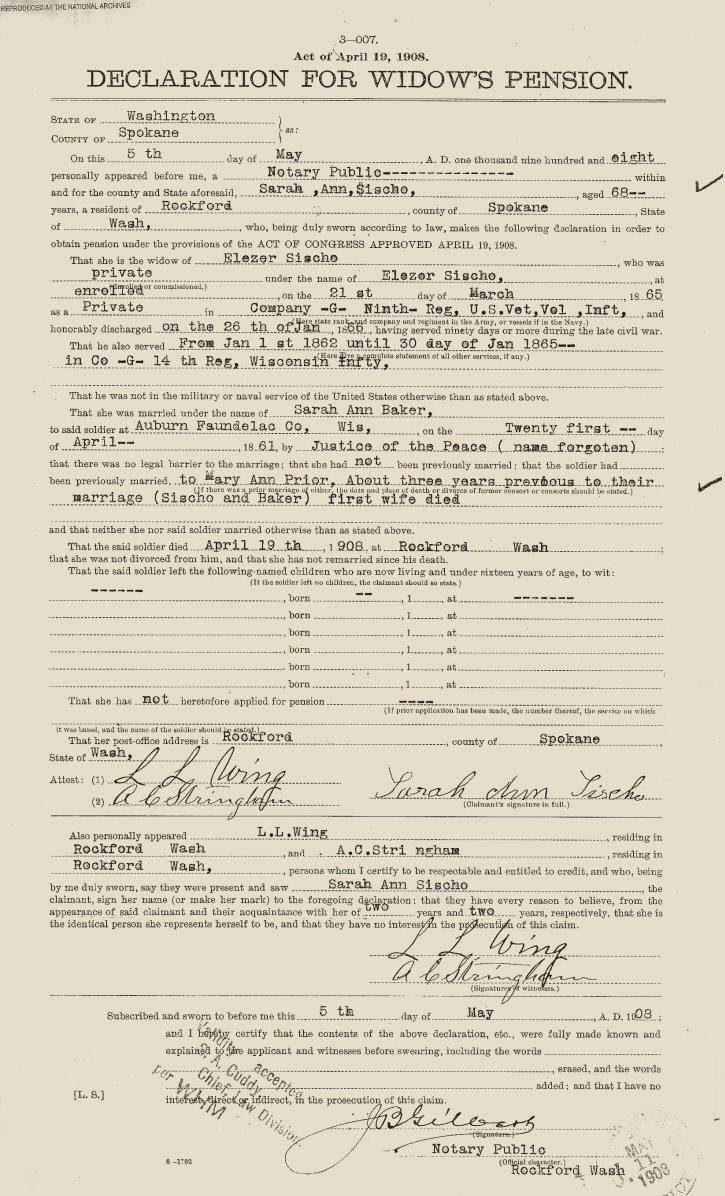 REPRODUCED AT THE NATIONAL ARCHIVES
3—007.
Act of April 19, 1908.
DECLARATION FOR WIDOW'S PENSION.
STATE OF Washington
COUNTY OF Spokane } ss:
On this 5 th day of May, A. D. one thousand nine hundred and eight
personally appeared before me, a Notary Public--------------- within
and for the county and State aforesaid, Sarah ,Ann,Sischo, aged 68--
years, a resident of Rockford, county of Spokane, State
of Wash, who, being duly sworn according to law, makes the following declaration in order to
obtain pension under the provisions of the ACT OF CONGRESS APPROVED APRIL 19, 1908.
That she is the widow of Elezer Sischo, who was
private under the name of Elezer Sischo, at
(Enrolled or commissioned.)
enrolled, on the 21 st day of March, 1865
as a Private in Company -G- Ninth- Reg, U.S.Vet,Vol ,Inft, and
(Here state rank, and company and regiment in the Army, or vessels if in the Navy.)
honorably discharged on the 26 th of Jan, 1866, having served ninety days or more during the late civil war.
That he also served From Jan 1 st 1862 until 30 day of Jan 1865--
(Here give a complete statement of all other services, if any.)
in Co -G- 14 th Reg, Wisconsin Infty,
That he was not in the military or naval service of the United States otherwise than as stated above.
That she was married under the name of Sarah Ann Baker,
to said soldier at Auburn Faundelac Co, Wis, on the Twenty first -- day
of April--, 1861, by Justice of the Peace ( name forgoten) ;
that there was no legal barrier to the marriage; that she had not been previously married; that the soldier had
been previously married, to Mary Ann Prior, About three years previous to their
(If there was a prior marriage of either, the date and place of death or divorce of former consort or consorts should be stated.)
marriage (Sischo and Baker) first wife died
and that neither she nor said soldier married otherwise than as stated above.
That the said soldier died April 19 th, 1908, at Rockford Wash;
that she was not divorced from him, and that she has not remarried since his death.
That the said soldier left the following-named children who are now living and under sixteen years of age, to wit:
(If the soldier left no children, the claimant should so state.)
------, born --, 1 , at -------
, born , 1 , at
, born , 1 , at
, born , 1 , at
, born , 1 , at
, born , 1 , at
That she has not heretofore applied for pension ----
(If prior application has been made, the number thereof, the service on which
it was based, and the name of the soldier should be stated.)
That her post-office address is Rockford, county of Spokane,
State of Wash,
Attest: (1) L L Wing
(2) A C Stringham
Sarah Ann Sischo
(Claimant's signature in full.)
Also personally appeared L.L.Wing, residing in
Rockford Wash, and A.C.Stri ngham, residing in
Rockford Wash, persons whom I certify to be respectable and entitled to credit, and who, being
by me duly sworn, say they were present and saw Sarah Ann Sischo, the
claimant, sign her name (or make her mark) to the foregoing declaration; that they have every reason to believe, from the
appearance of said claimant and their acquaintance with her of two years and two years, respectively, that she is
the identical person she represents herself to be, and that they have no interest in the prosecution of this claim.
L L Wing
A C Stringham
(Signatures of witnesses.)
Subscribed and sworn to before me this 5 th day of May, A. D. 1908 ;
and I hereby certify that the contents of the above declaration, etc., were fully made known and
explained to the applicant and witnesses before swearing, including the words
, erased, and the words
added; and that I have no
[L. S.] interest, direct or indirect, in the prosecution of this claim.
Validity accepted
A. Cuddy
Chief Law Division
per WHM
J B Gilbert
(Signature.)
Notary Public
(Official character.)
Rockford Wash
MAY 11 1908